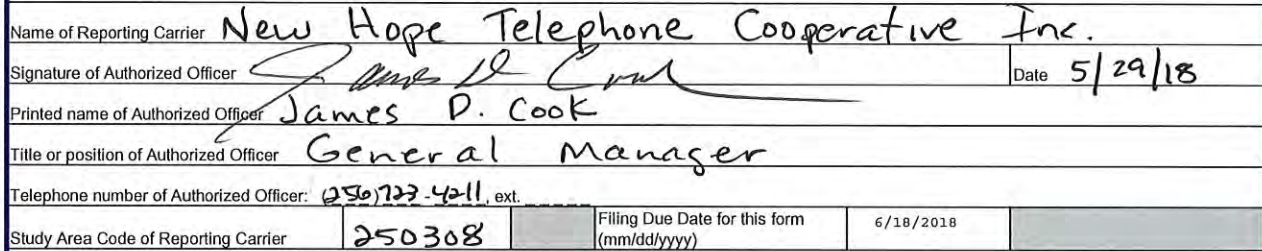 Name of Reporting Carrier New Hope Telephone Cooperative Inc.
Signature of Authorized Officer James D Cook Date 5/29/18
Printed name of Authorized Officer James D. Cook
Title or position of Authorized Officer General Manager
Telephone number of Authorized Officer: (256)723-4211, ext.
Study Area Code of Reporting Carrier 250308 Filing Due Date for this form 6/18/2018
(mm/dd/yyyy)